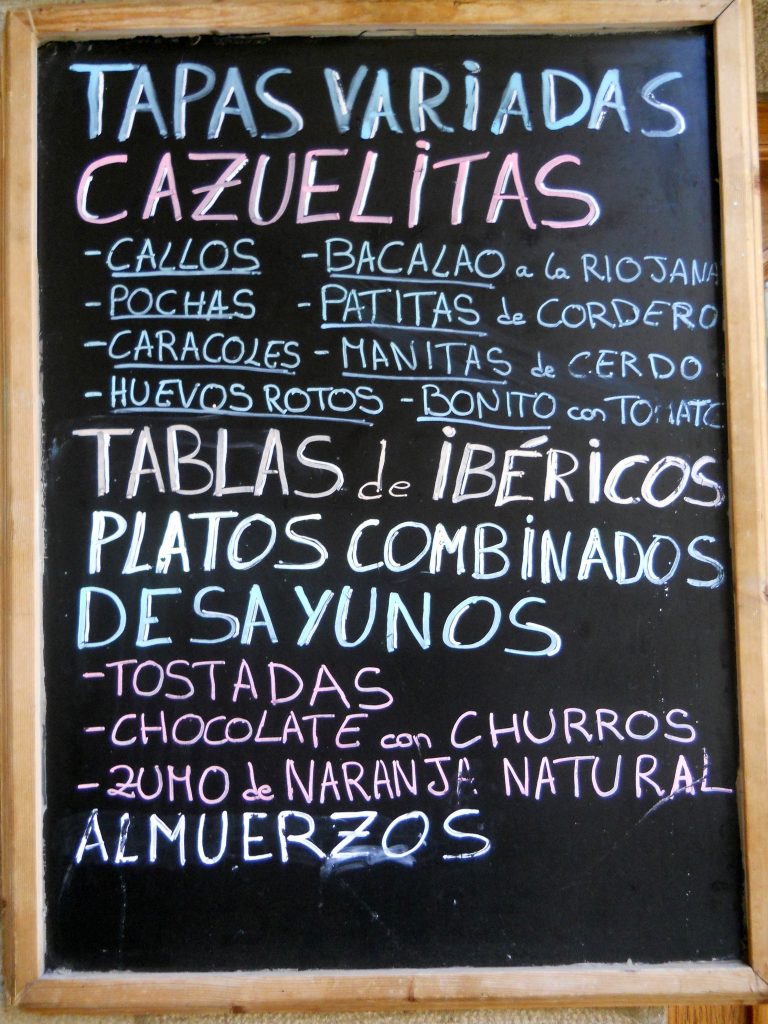 TAPAS VARIADAS
CAZUELITAS
- CALLOS - BACALAO a la RIOJANA
- POCHAS - PATITAS de CORDERO
- CARACOLES - MANITAS de CERDO
- HUEVOS ROTOS - BONITO con TOMATO
TABLAS de IBÉRICOS
PLATOS COMBINADOS
DESAYUNOS
- TOSTADAS
- CHOCOLATE con CHURROS
- ZUMO de NARANJA NATURAL
ALMUERZOS